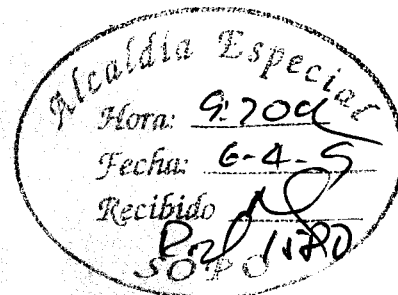 Alcaldia Especial
Hora: 9:20a
Fecha: 6-4-5
Recibido
SOPO